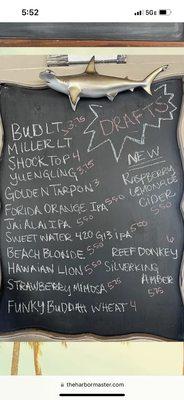 5:52
5G
DRAFTS
BUD LT 3.75
MILLER LT
SHOCK TOP 4
YUENGLING 3.75
GOLDEN TARPON
FORIDA ORANGE IPA 5.50
JAI ALAI IPA 5.50
SWEET WATER 420 G13 IPA 5.00
BEACH BLONDE 5.50
HAWAIIAN LION 5.50
STRAWBERRY MIMOSA 5.75
FUNKY BUDDAH WHEAT 4
NEW
RASPBERRY
LEMONADE
CIDER
5.50
REEF DONKEY 6
SILVERKING
AMBER
5.75
theharbormaster.com